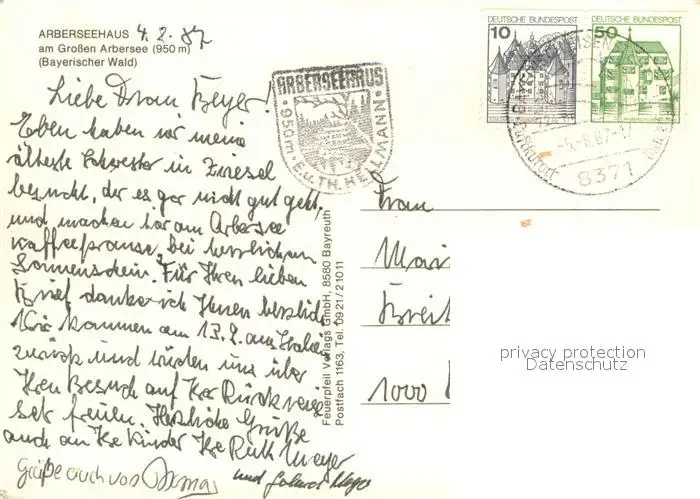 ARBERSEEHAUS
am Großen Arbersee (950 m)
(Bayerischer Wald)
4. 2. 87
Liebe Frau Beyer!
Eben haben wir meine
älteste Schwester in Zwiesel
besucht, der es gar nicht gut geht,
und machen hier am Arbersee
Kaffeepause bei herrlichem
Sonnenschein. Für Ihren lieben
Brief danke ich Ihnen herzlich.
Wir kommen am 13.9. aus Italien
zurück und würden uns über
Ihren Besuch auf der Rückreise
sehr freuen. Herzliche Grüße
auch an Ihre Kinder Ihre Ruth Meyer
Grüße auch von
und
ARBERSEEHAUS
950m
E.u.TH. HELLMANN
Feuerpfeil Verlags GmbH, 8580 Bayreuth
Postfach 1163, Tel. 0921/21011
DEUTSCHE BUNDESPOST
10
DEUTSCHE BUNDESPOST
50
8371
Frau
1000
privacy protection
Datenschutz